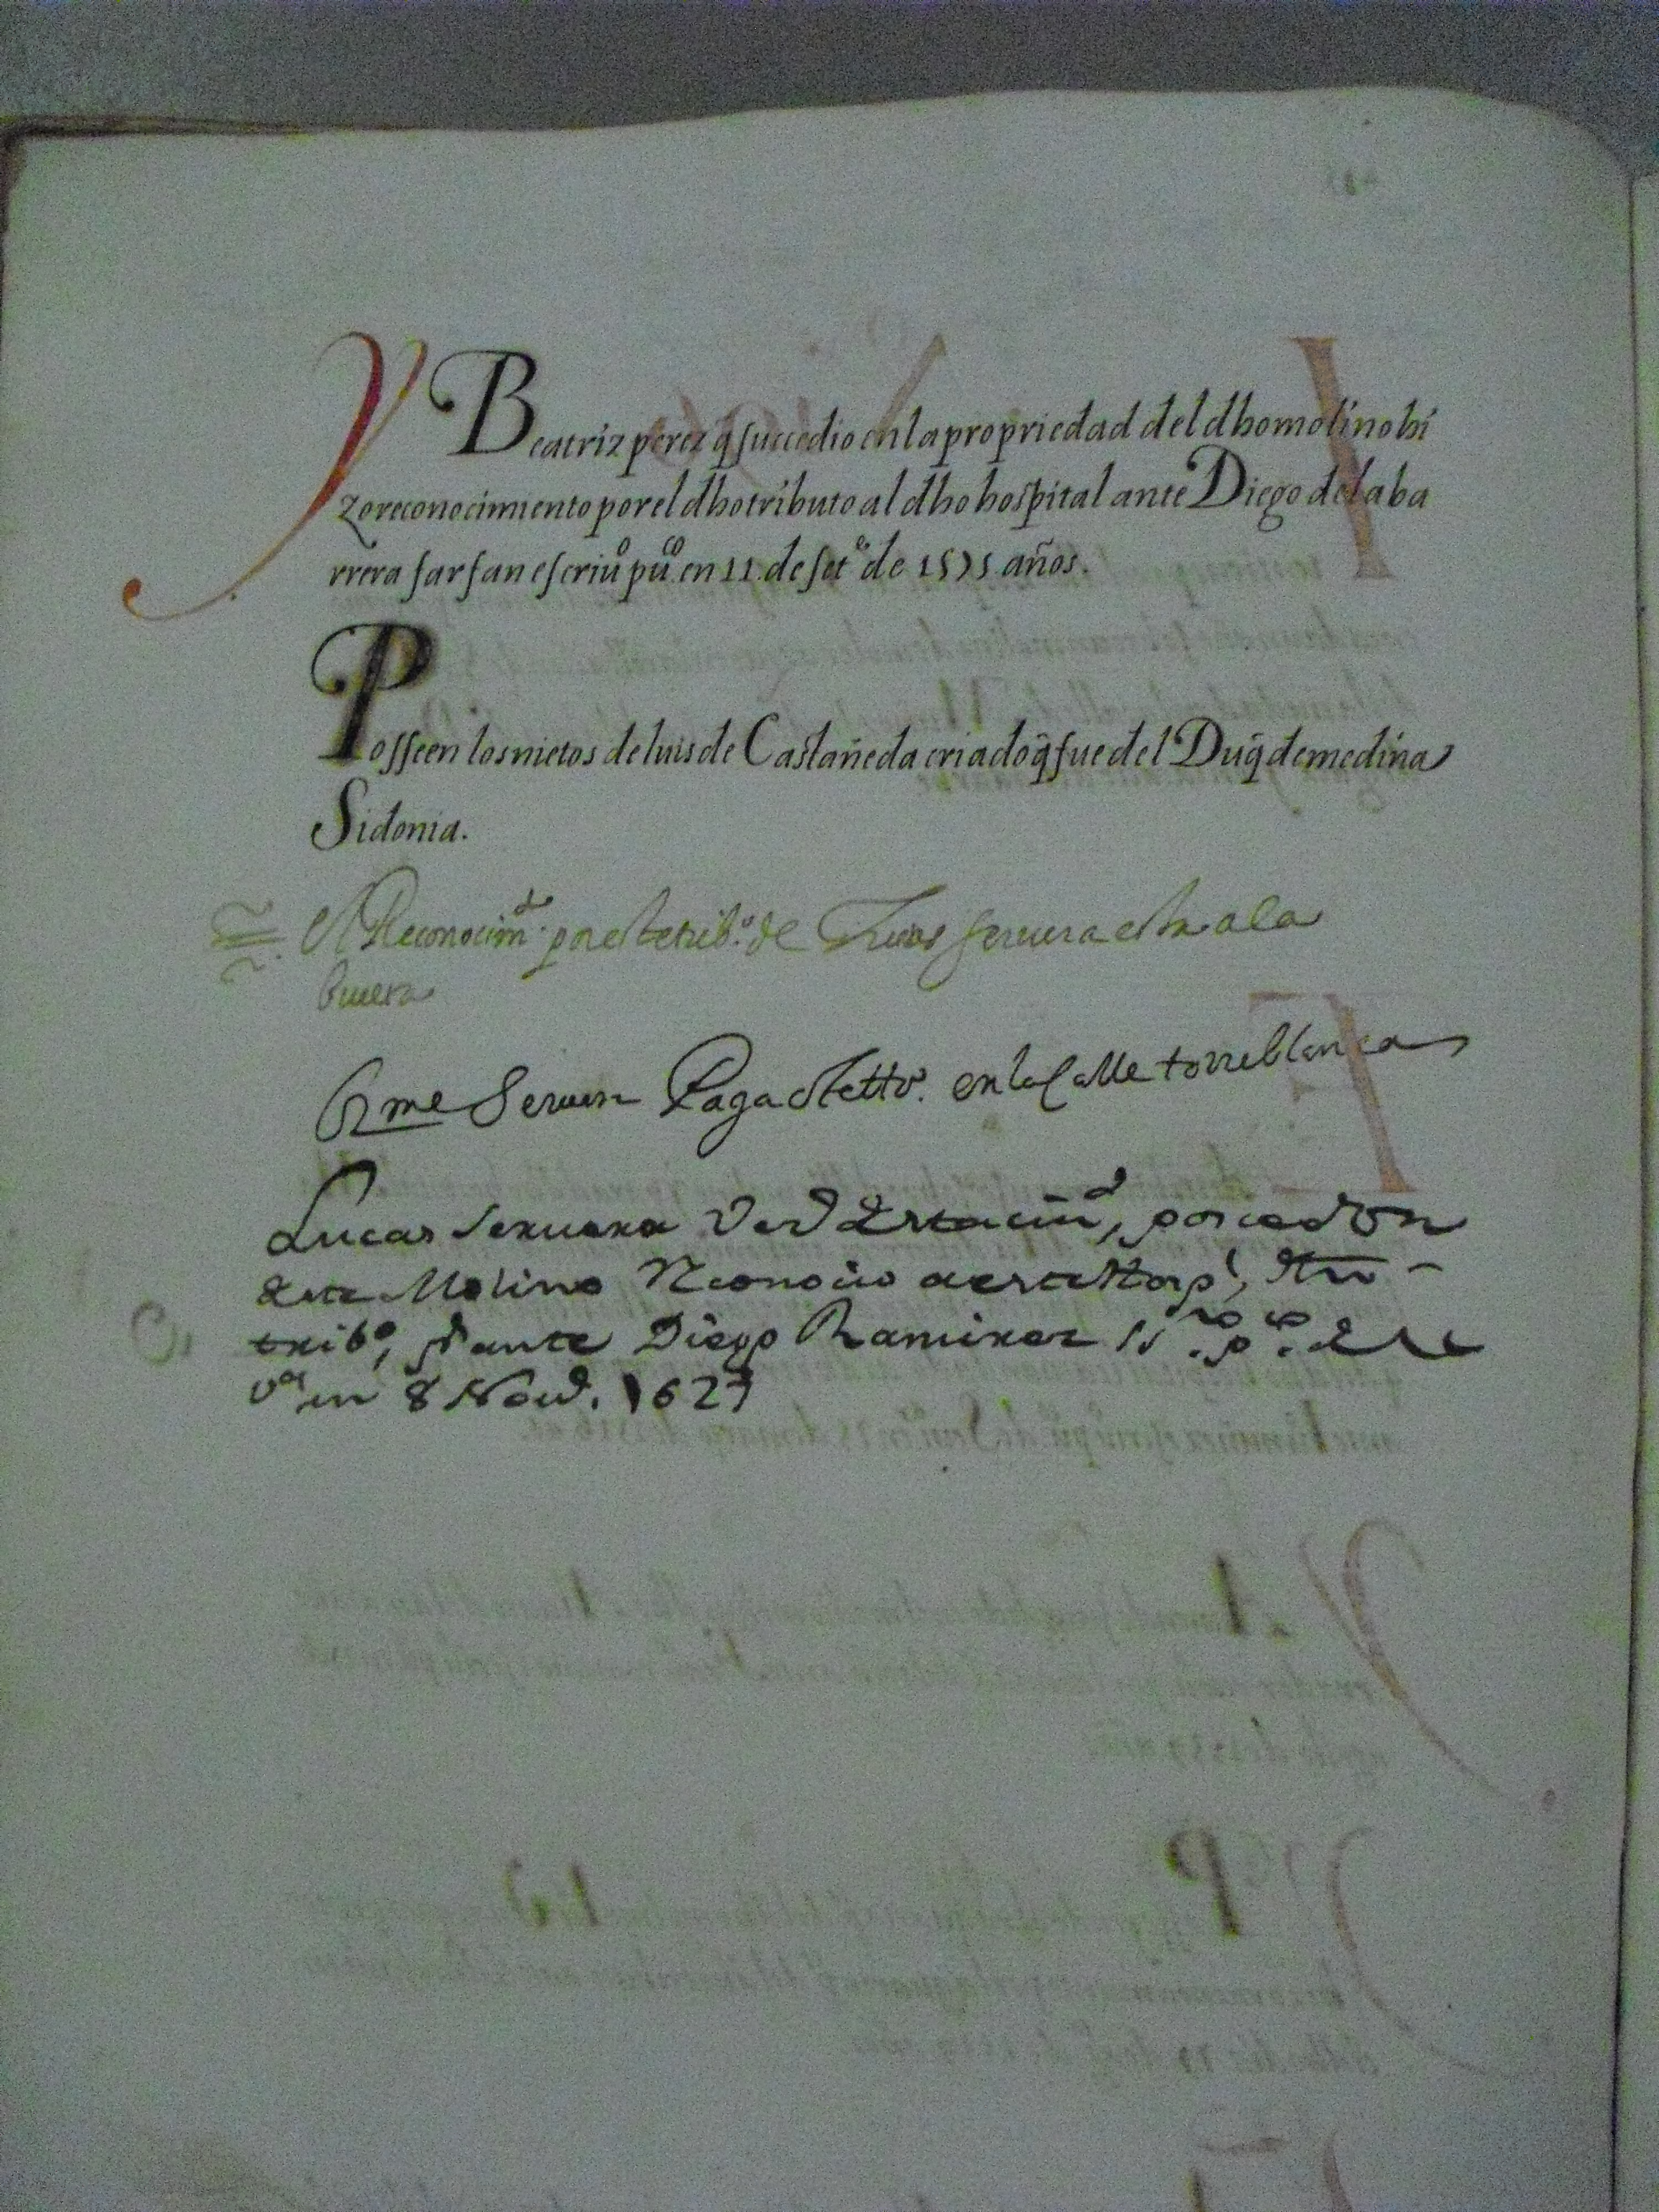 Y Beatriz perez q̃ succedio en la propriedad del dho molino hi
zo reconocimiento por el dho tributo al dho hospital ante Diego de la ba
rrera farfan escriuº pu.co en 11. de setº de 1575 años.
Posseen los nietos de luis de Castañeda criado q̃ fue del Duq̃ de medina
Sidonia.
El Reconocimtº. por este tribº. de Lucas seruera esta a la
buelta
Seruera Paga este ttº. en la Calle torreblanca
Lucas seruera por
este Molino Reconocio a este Hospl,
tribº, ante Diego Ramirez
en 8 Nou. 1627